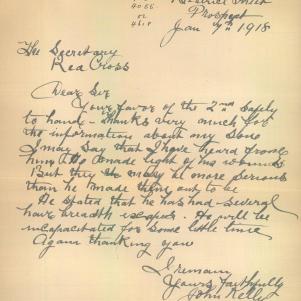 4066
or
Prospect
Jan 7th 1918
The Secretary
Red Cross
Dear Sir
Your favor of the 2nd safely
to hand - thanks very much for
the information about my Sone
I may say that I have heard from
him & He made light of his wounds
But they more serious
than he made them out to be
He stated that he has had several
have breadth escapes. He will be
incapacitated for some little time
Again thanking you
I remain
Yours faithfully
John Kelly